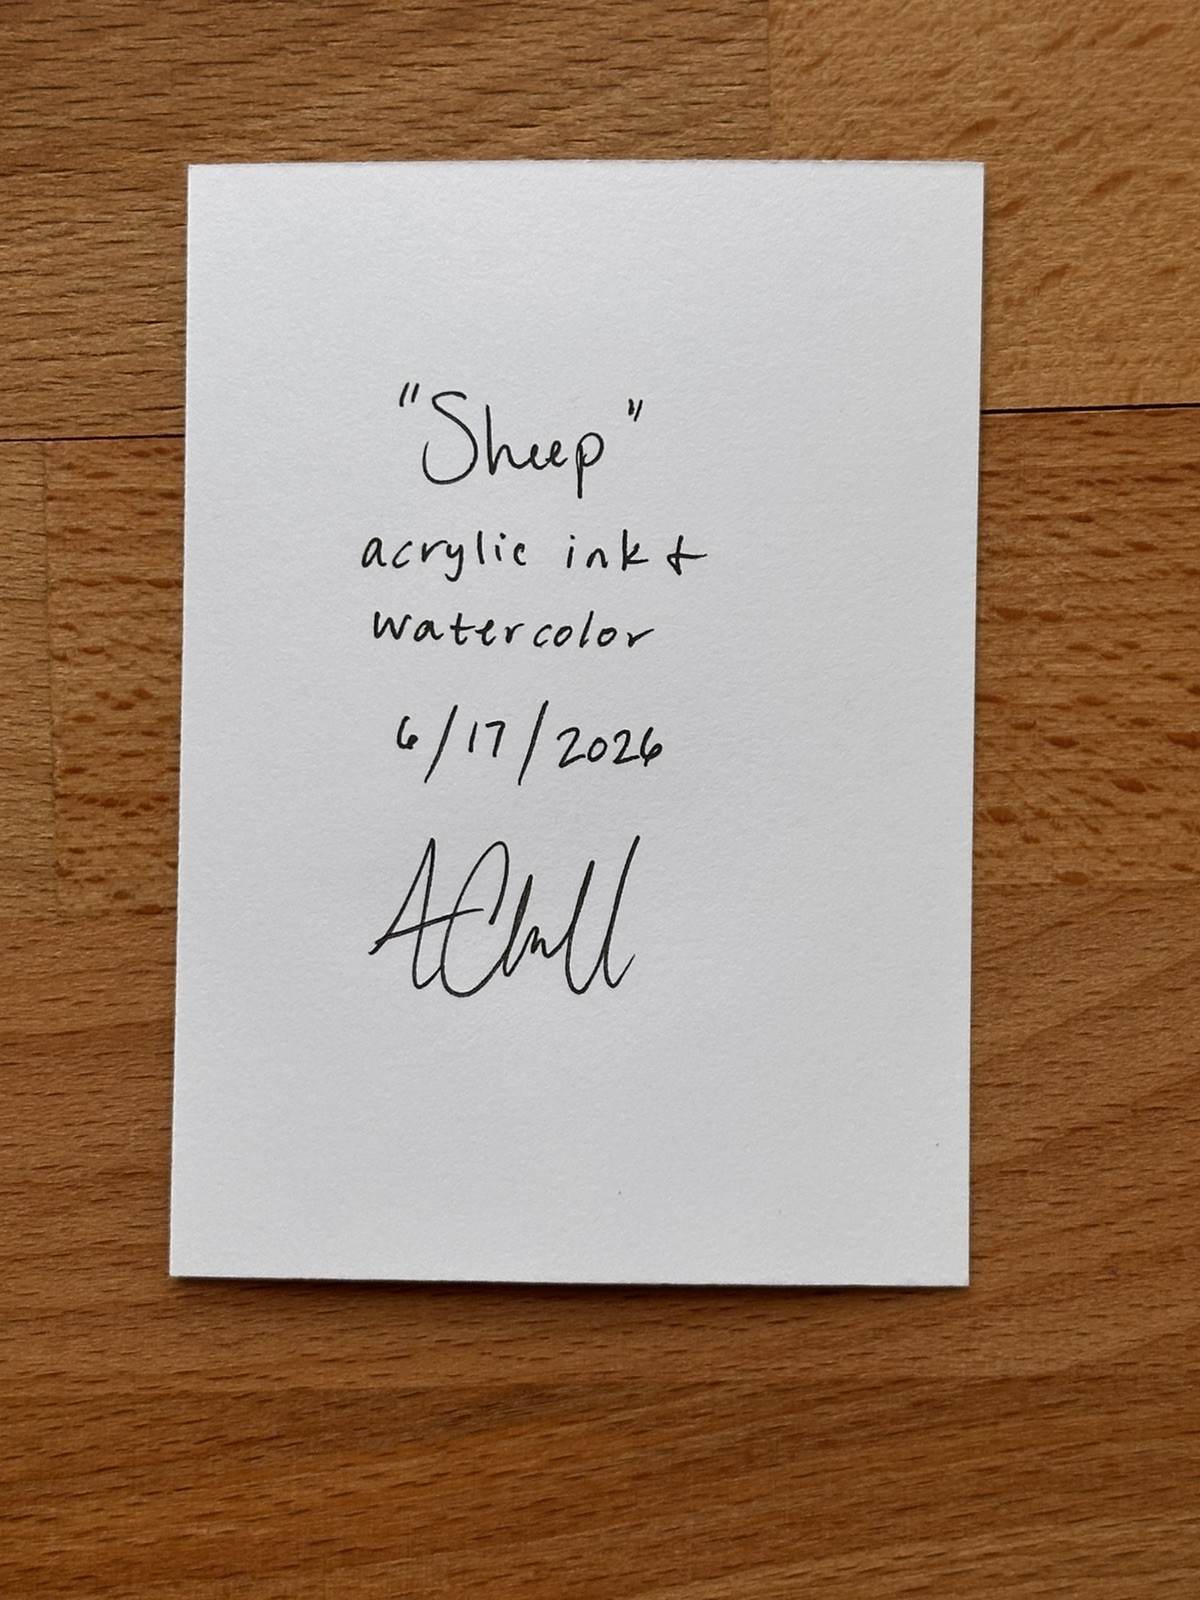 "Sheep"
acrylic ink +
watercolor
6/17/2026